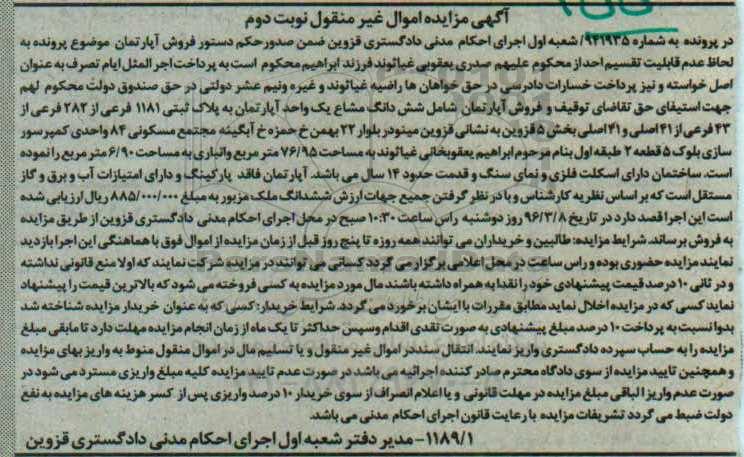 آگهی مزایده اموال غیر منقول نوبت دوم
در پرونده به شماره ۹۴۱۹۳۵/ شعبه اول اجرای احکام مدنی دادگستری قزوین ضمن صدور حکم دستور فروش آپارتمان موضوع پرونده به
لحاظ عدم قابلیت تقسیم احد از محکوم علیهم صدری یعقوبی غیاثوند فرزند ابراهیم محکوم است به پرداخت اجر المثل ایام تصرف به عنوان
اصل خواسته و نیز پرداخت خسارات دادرسی در حق خواهان ها راضیه غیاثوند و غیره ونیم عشر دولتی در حق صندوق دولت محکوم لهم
جهت استیفای حق تقاضای توقیف و فروش آپارتمان شامل شش دانگ مشاع یک واحد آپارتمان به پلاک ثبتی ۱۱۸۱ فرعی از ۲۸۲ فرعی از
۴۳ فرعی از ۴۱ اصلی و ۴۱ اصلی بخش ۵ قزوین به نشانی قزوین مینودر بلوار ۲۲ بهمن خ حمزه خ آبگینه مجتمع مسکونی ۸۴ واحدی کمپرسور
سازی بلوک ۵ قطعه ۲ طبقه اول بنام مرحوم ابراهیم یعقوبخانی غیاثوند به مساحت ۷۶/۹۵ متر مربع وانباری به مساحت ۶/۹۰ متر مربع را نموده
است. ساختمان دارای اسکلت فلزی و نمای سنگ و قدمت حدود ۱۴ سال می باشد. آپارتمان فاقد پارکینگ و دارای امتیازات آب و برق و گاز
مستقل است که بر اساس نظریه کارشناس و با در نظر گرفتن جمیع جهات ارزش ششدانگ ملک مزبور به مبلغ ۸۸۵/۰۰۰/۰۰۰ ریال ارزیابی شده
است این اجرا قصد دارد در تاریخ ۹۶/۳/۸ روز دوشنبه راس ساعت ۱۰:۳۰ صبح در محل اجرای احکام مدنی دادگستری قزوین از طریق مزایده
به فروش برساند. شرایط مزایده: طالبین و خریداران می توانند همه روزه تا پنج روز قبل از زمان مزایده از اموال فوق با هماهنگی این اجرا بازدید
نمایند مزایده حضوری بوده و راس ساعت در محل اعلامی برگزار می گردد کسانی می توانند در مزایده شرکت نمایند که اولا منع قانونی نداشته
و در ثانی ۱۰ درصد قیمت پیشنهادی خود را نقدا به همراه داشته باشند مال مورد مزایده به کسی فروخته می شود که بالاترین قیمت را پیشنهاد
نماید کسی که در مزایده اخلال نماید مطابق مقررات با ایشان برخورد می گردد. شرایط خریدار: کسی که به عنوان خریدار مزایده شناخته شد
بدوا نسبت به پرداخت ۱۰ درصد مبلغ پیشنهادی به صورت نقدی اقدام وسپس حداکثر تا یک ماه از زمان انجام مزایده مهلت دارد تا مابقی مبلغ
مزایده را به حساب سپرده دادگستری واریز نمایند. انتقال سند در اموال غیر منقول و یا تسلیم مال در اموال منقول منوط به واریز بهای مزایده
و همچنین تایید مزایده از سوی دادگاه محترم صادر کننده اجرائیه می باشد در صورت عدم تایید مزایده کلیه مبلغ واریزی مسترد می شود در
صورت عدم واریز الباقی مبلغ مزایده در مهلت قانونی و یا اعلام انصراف از سوی خریدار ۱۰ درصد واریزی پس از کسر هزینه های مزایده به نفع
دولت ضبط می گردد تشریفات مزایده با رعایت قانون اجرای احکام مدنی می باشد.
۱۱۸۹/۱- مدیر دفتر شعبه اول اجرای احکام مدنی دادگستری قزوین